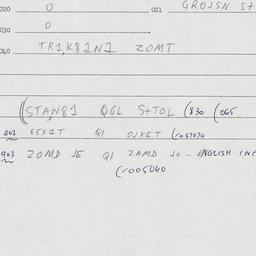 020 0 021 GROJSN S+
030 0
040 TR1,K81N1 ZOMT
(STAN81 QGL S+TOL (830 (065
802 E5X1T Q1 OJXET (1037070
903 ZOMD JE Q1 ZAMD JO ... ENGLISH INC
(1005040